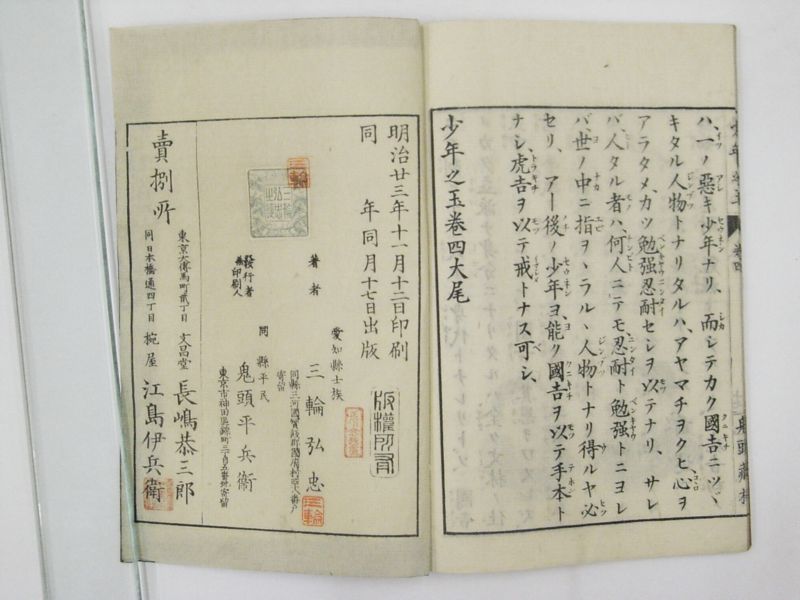 ハ、一ノ惡キ少年ナリ、而シテカク國吉ニツヾ
キタル人物トナリタルハ、アヤマチヲクヒ、心ヲ
アラタメ、カツ勉强忍耐セシヲ以テナリ、サレ
バ、人タル者ハ、何人ニテモ、忍耐ト勉强トニヨレ
バ、世ノ中ニ指ヲヽラルヽ人物トナリ得ルヤ必
セリ、アー後ノ少年ヨ、能ク國吉ヲ以テ手本ト
ナシ、虎吉ヲ以テ戒トナス可シ、
少年之玉卷四大尾
明治廿三年十一月十二日印刷
同年同月十七日出版
版權所有
愛知縣士族
著者 三輪弘忠
三輪
同縣平民
發行者兼印刷人 鬼頭平兵衞
賣捌所
東京大傳馬町貳丁目 文昌堂 長嶋恭三郎
同日本橋通四丁目 椀屋 江島伊兵衞